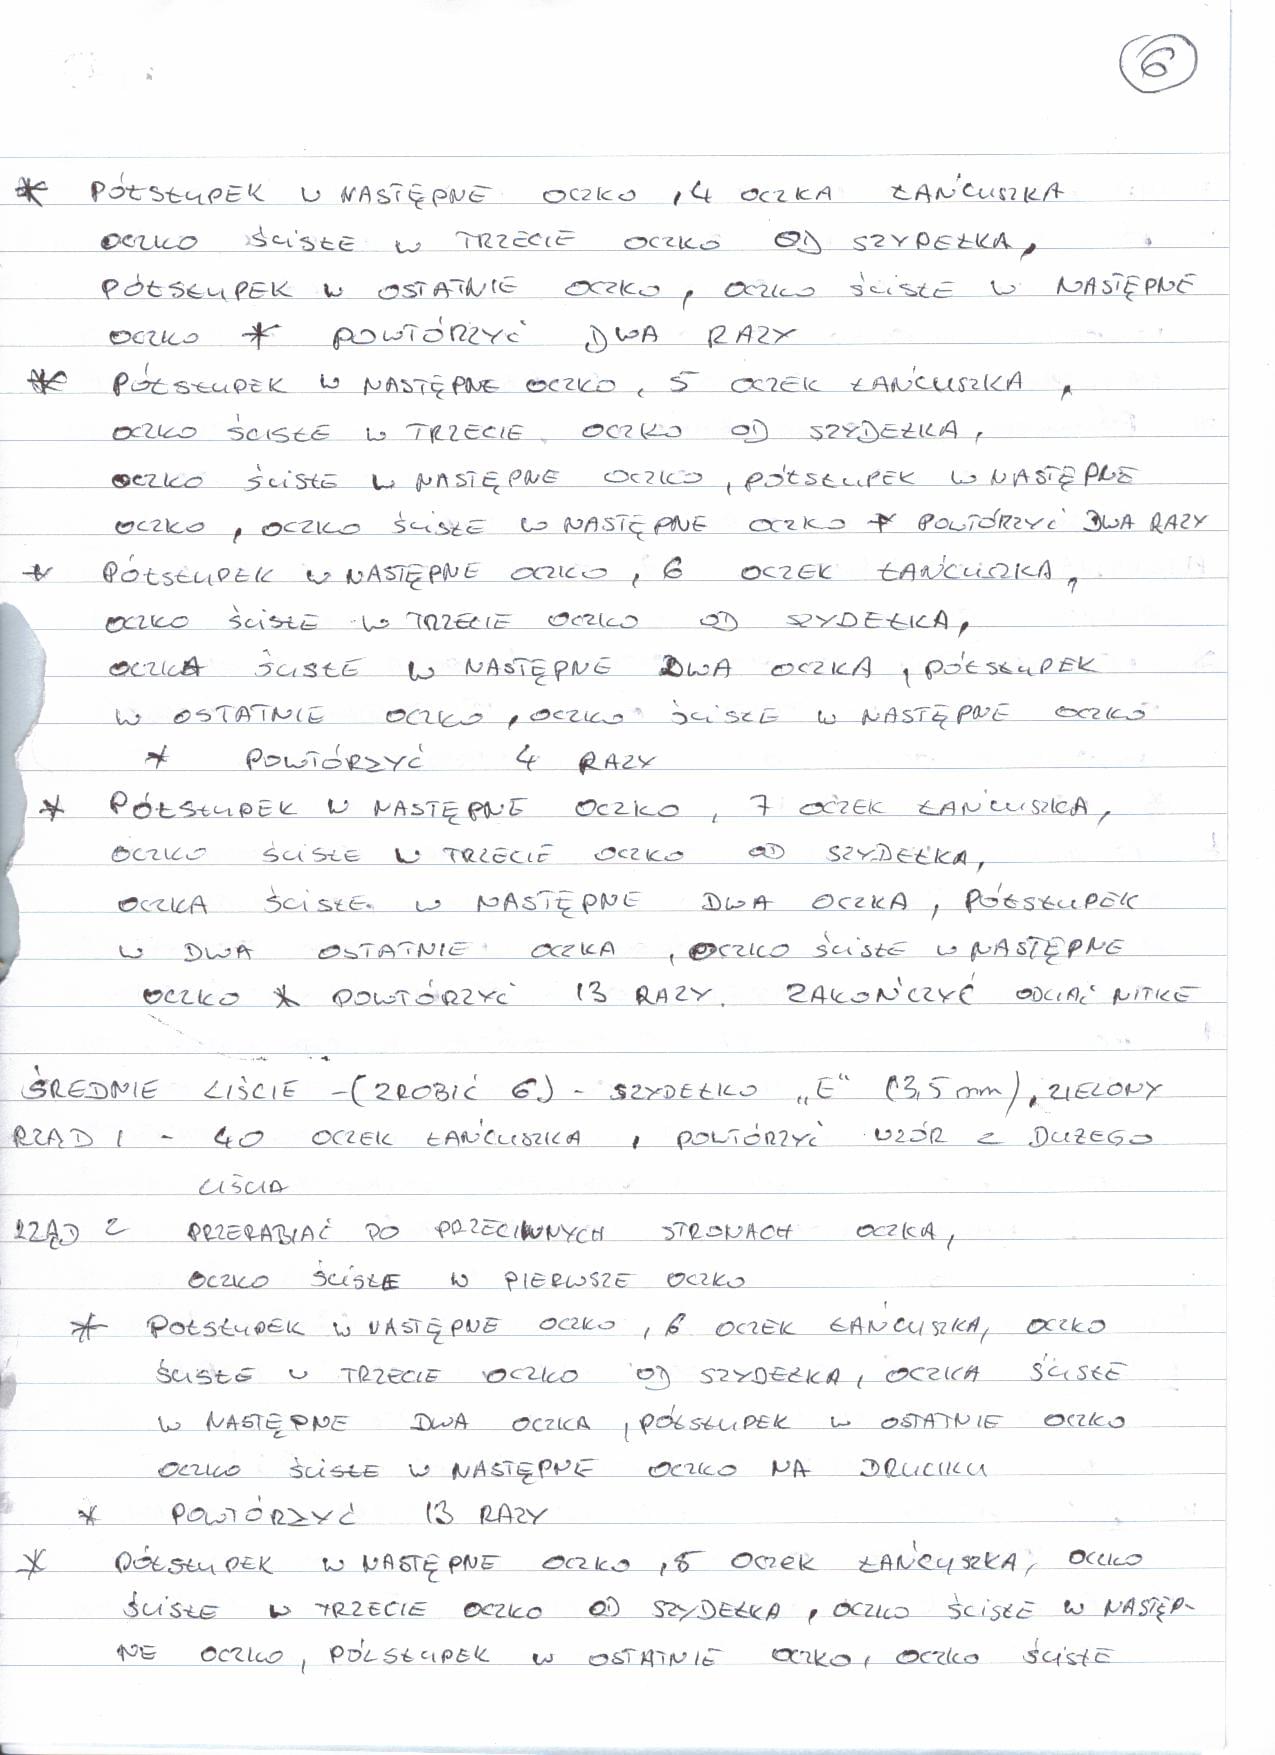 6
* PÓŁSŁUPEK W NASTĘPNE OCZKO, 4 OCZKA ŁAŃCUSZKA
OCZKO ŚCISŁE W TRZECIE OCZKO OD SZYDEŁKA,
PÓŁSŁUPEK W OSTATNIE OCZKO, OCZKO ŚCISŁE W NASTĘPNE
OCZKO * POWTÓRZYĆ DWA RAZY
* PÓŁSŁUPEK W NASTĘPNE OCZKO, 5 OCZEK ŁAŃCUSZKA,
OCZKO ŚCISŁE W TRZECIE OCZKO OD SZYDEŁKA,
OCZKO ŚCISŁE W NASTĘPNE OCZKO, PÓŁSŁUPEK W NASTĘPNE
OCZKO, OCZKO ŚCISŁE W NASTĘPNE OCZKO * POWTÓRZYĆ DWA RAZY
* PÓŁSŁUPEK W NASTĘPNE OCZKO, 6 OCZEK ŁAŃCUSZKA,
OCZKO ŚCISŁE W TRZECIE OCZKO OD SZYDEŁKA,
OCZKA ŚCISŁE W NASTĘPNE DWA OCZKA, PÓŁSŁUPEK
W OSTATNIE OCZKO, OCZKO ŚCISŁE W NASTĘPNE OCZKO
* POWTÓRZYĆ 4 RAZY
* PÓŁSŁUPEK W NASTĘPNE OCZKO, 7 OCZEK ŁAŃCUSZKA,
OCZKO ŚCISŁE W TRZECIE OCZKO OD SZYDEŁKA,
OCZKA ŚCISŁE W NASTĘPNE DWA OCZKA, PÓŁSŁUPEK
W DWA OSTATNIE OCZKA, OCZKO ŚCISŁE W NASTĘPNE
OCZKO * POWTÓRZYĆ 13 RAZY. ZAKOŃCZYĆ ODCIĄĆ NITKE
ŚREDNIE LIŚCIE - (ZROBIĆ 6) - SZYDEŁKO „E" (3,5 mm), ZIELONY
RZAD 1 - 40 OCZEK ŁAŃCUSZKA, POWTÓRZYĆ WZÓR Z DUŻEGO
LIŚCIA
RZĄD 2 PRZERABIAĆ PO PRZECIWNYCH STRONACH OCZKA,
OCZKO ŚCISŁE W PIERWSZE OCZKO
* PÓŁSŁUPEK W NASTĘPNE OCZKO, 6 OCZEK ŁAŃCUSZKA, OCZKO
ŚCISŁE W TRZECIE OCZKO OD SZYDEŁKA, OCZKA ŚCISŁE
W NASTĘPNE DWA OCZKA, PÓŁSŁUPEK W OSTATNIE OCZKO
OCZKO ŚCISŁE W NASTĘPNE OCZKO NA DRUCIKU
* POWTÓRZYĆ 13 RAZY
* PÓŁSŁUPEK W NASTĘPNE OCZKO, 5 OCZEK ŁAŃCUSZKA, OCZKO
ŚCISŁE W TRZECIE OCZKO OD SZYDEŁKA, OCZKO ŚCISŁE W NASTĘP-
NE OCZKO, PÓŁSŁUPEK W OSTATNIE OCZKO, OCZKO ŚCISŁE